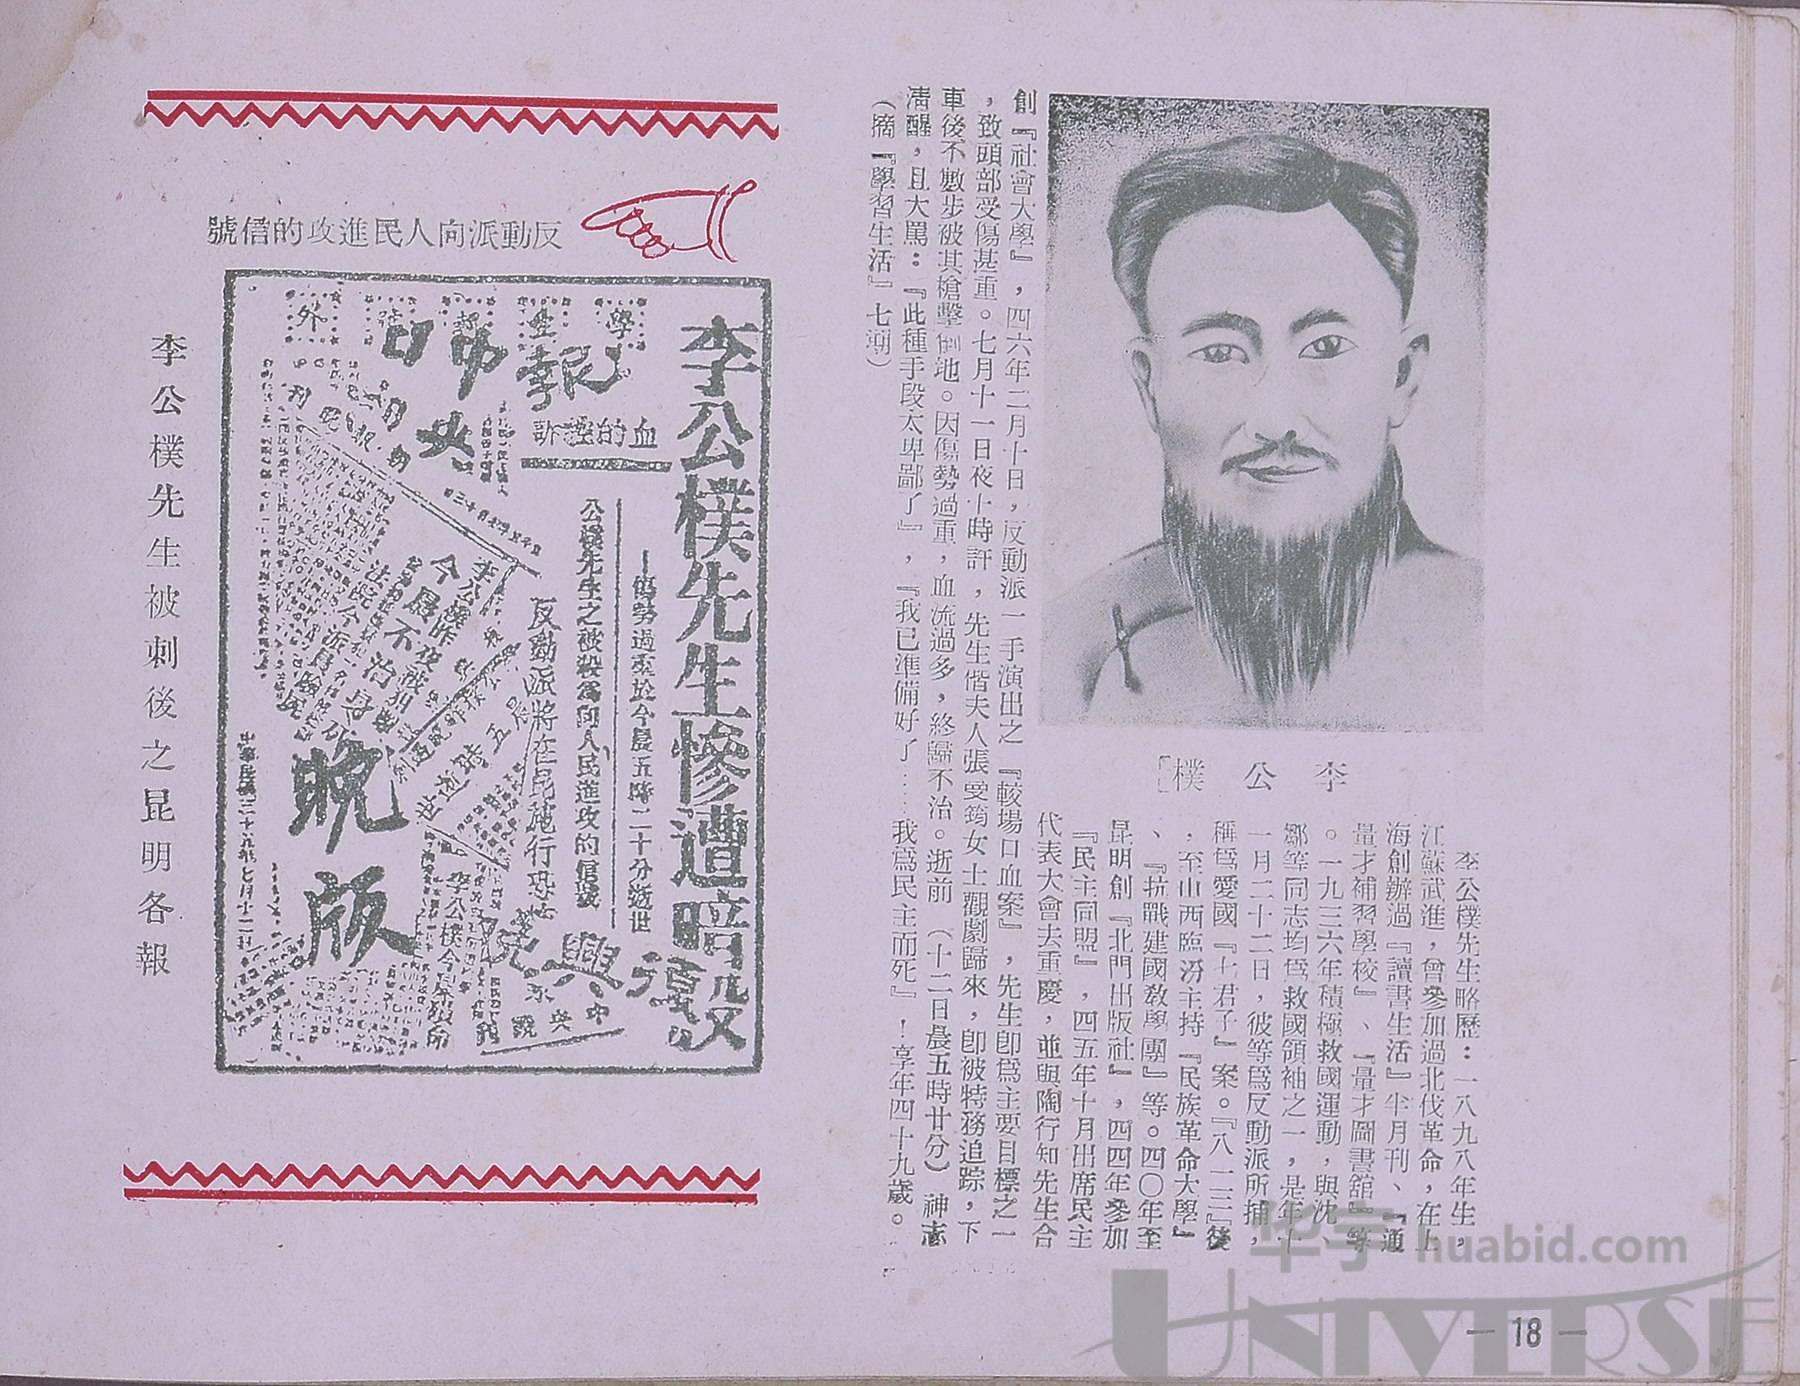 李公樸
李公樸先生略歷：一八九八年生，
江蘇武進，曾參加過北伐革命，在上
海創辦過『讀書生活』半月刊、『通
量才補習學校』、『量才圖書舘』等
。一九三六年積極救國運動，與沈、
鄒等同志均爲救國領袖之一，是年十
一月二十二日，彼等爲反動派所捕，
稱爲愛國『七君子』案。『八一三』後
，至山西臨汾主持『民族革命大學』
、『抗戰建國敎學團』等。四〇年至
昆明創『北門出版社』，四四年參加
『民主同盟』，四五年十月出席民主
代表大會去重慶，並與陶行知先生合
創『社會大學』，四六年二月十日，反動派一手演出之『較場口血案』，先生卽爲主要目標之一
，致頭部受傷甚重。七月十一日夜十時許，先生偕夫人張曼筠女士觀劇歸來，卽被特務追踪，下
車後不數步被其槍擊倒地。因傷勢過重，血流過多，終歸不治。逝前（十二日晨五時廿分）神志
淸醒，且大罵：『此種手段太卑鄙了』，『我已準備好了……我爲民主而死』！享年四十九歲。
（摘『學習生活』七期）
反動派向人民進攻的信號
李公樸先生慘遭暗殺
學生報
號外
血的控訴
—傷勢過重於今晨五時二十分逝世
公樸先生之被殺爲向人民進攻的信號
反動派將在昆施行恐怖
李公樸昨夜被刺
今晨不治身
法院今派員驗
晚版
復興晚
中央
中華民國三十五年七月十二日
李公樸先生被刺後之昆明各報
— 18 —
华宇 huabid.com
UNIVERSE